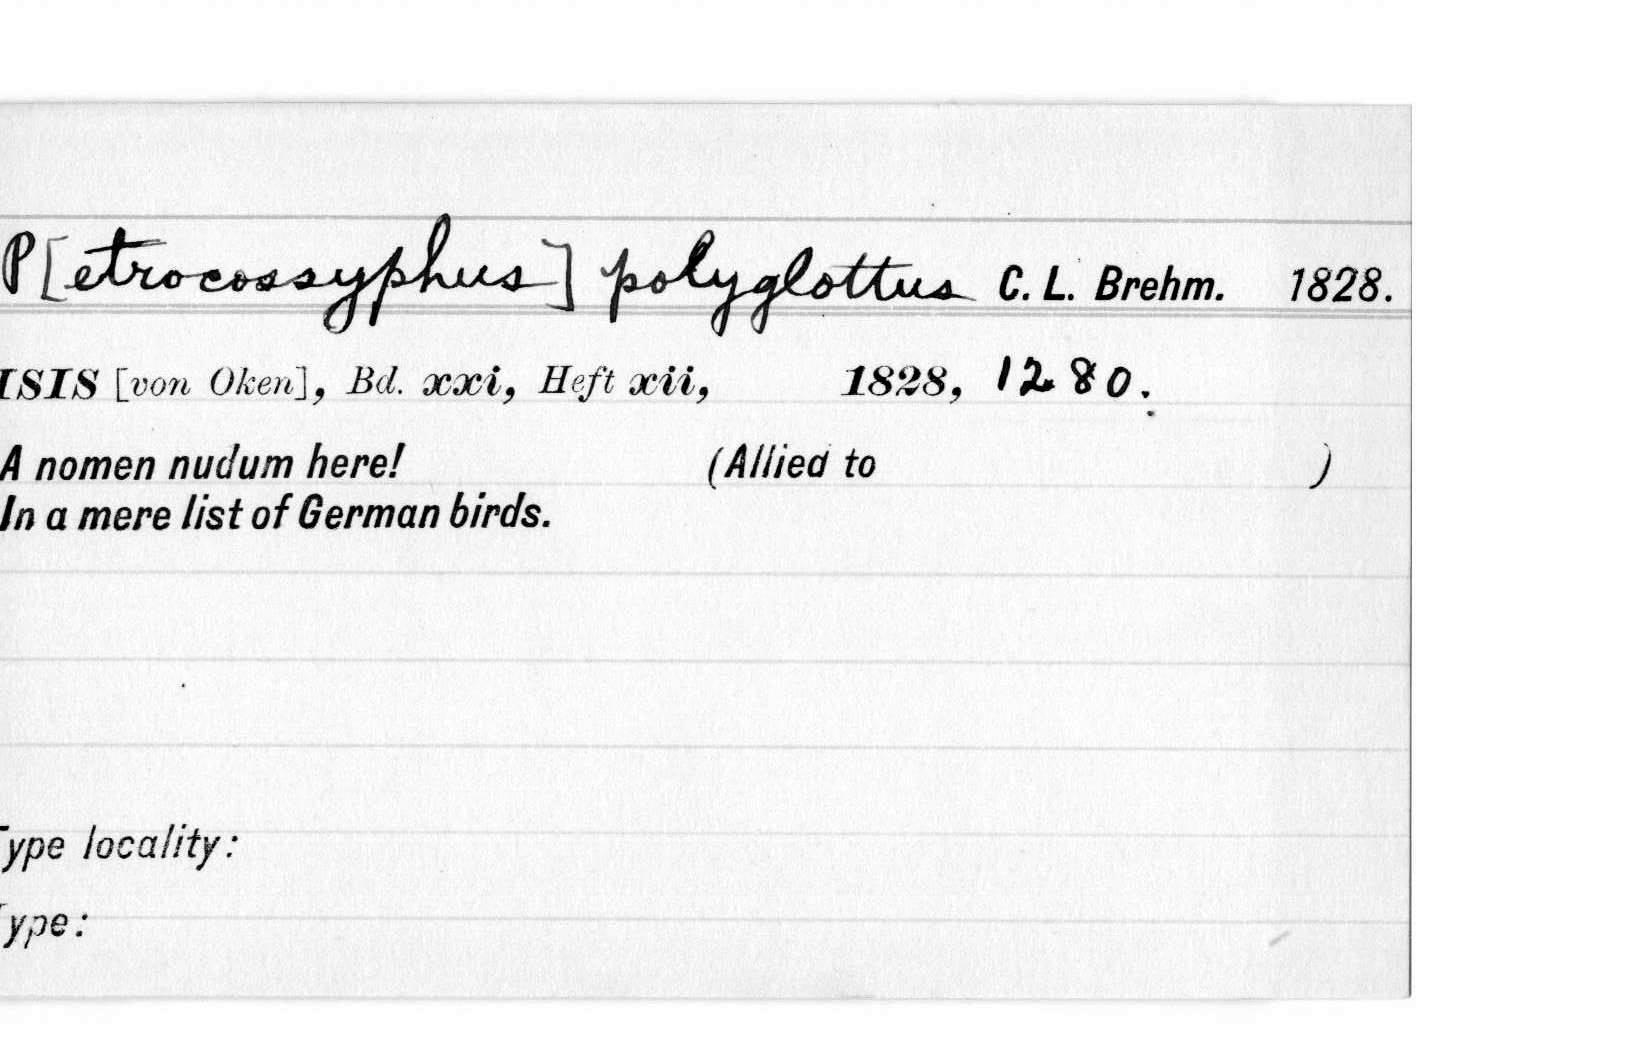 P[etrocossyphus] polyglottus C. L. Brehm. 1828.
ISIS [von Oken], Bd. xxi, Heft xii, 1828, 1280.
A nomen nudum here! (Allied to )
In a mere list of German birds.
Type locality:
Type: